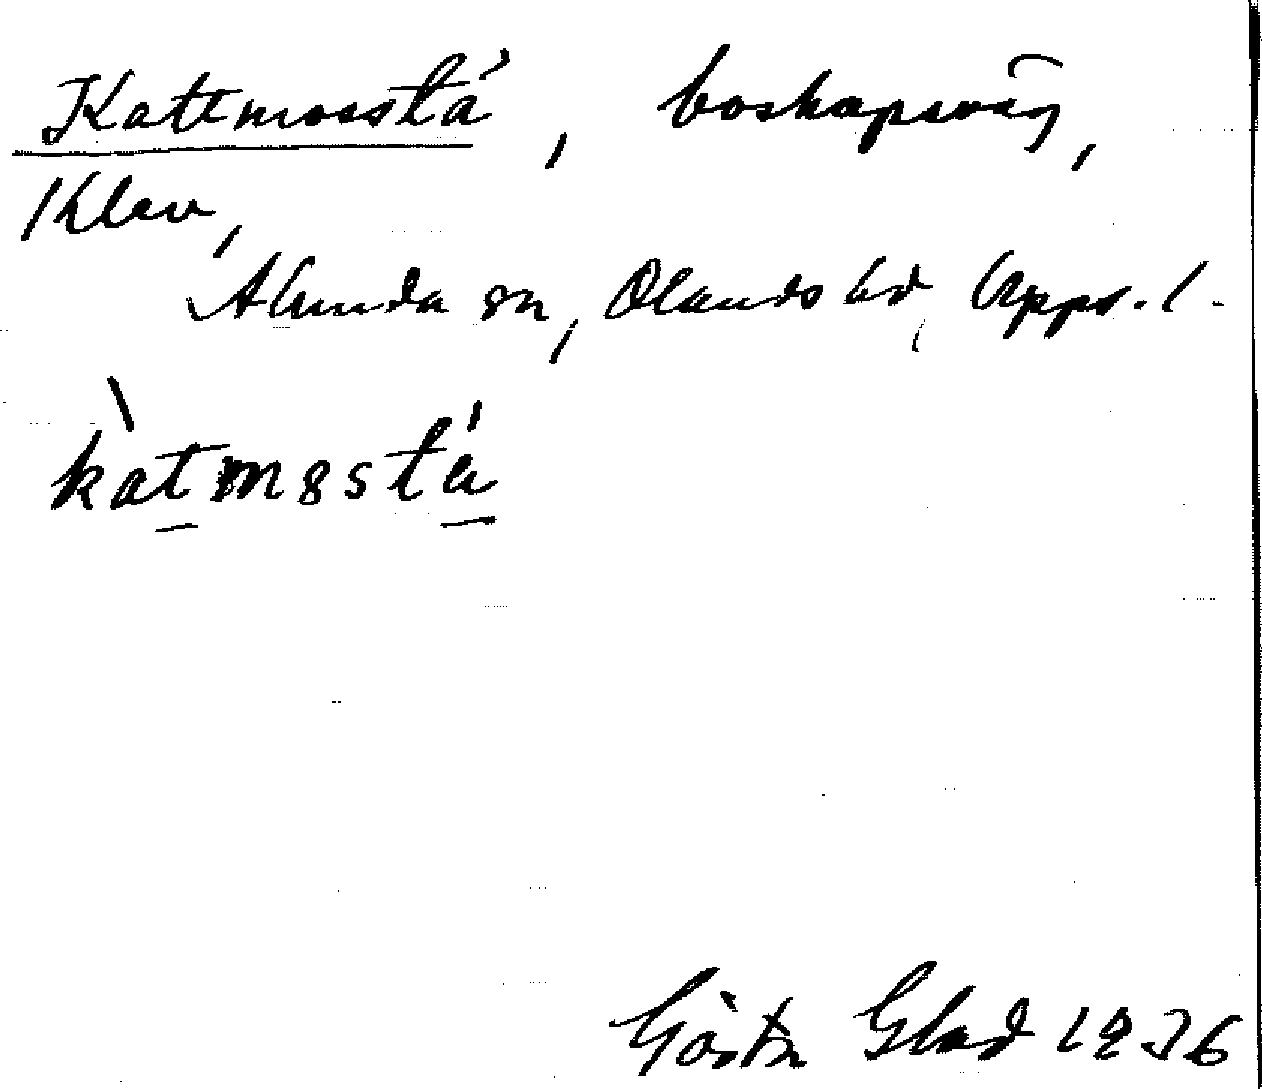 Kattmosstå, boskapsväg,
Klev,
Alunda sn, Olands hd, Upps. l.
katmostå
Gösta Glad 1936